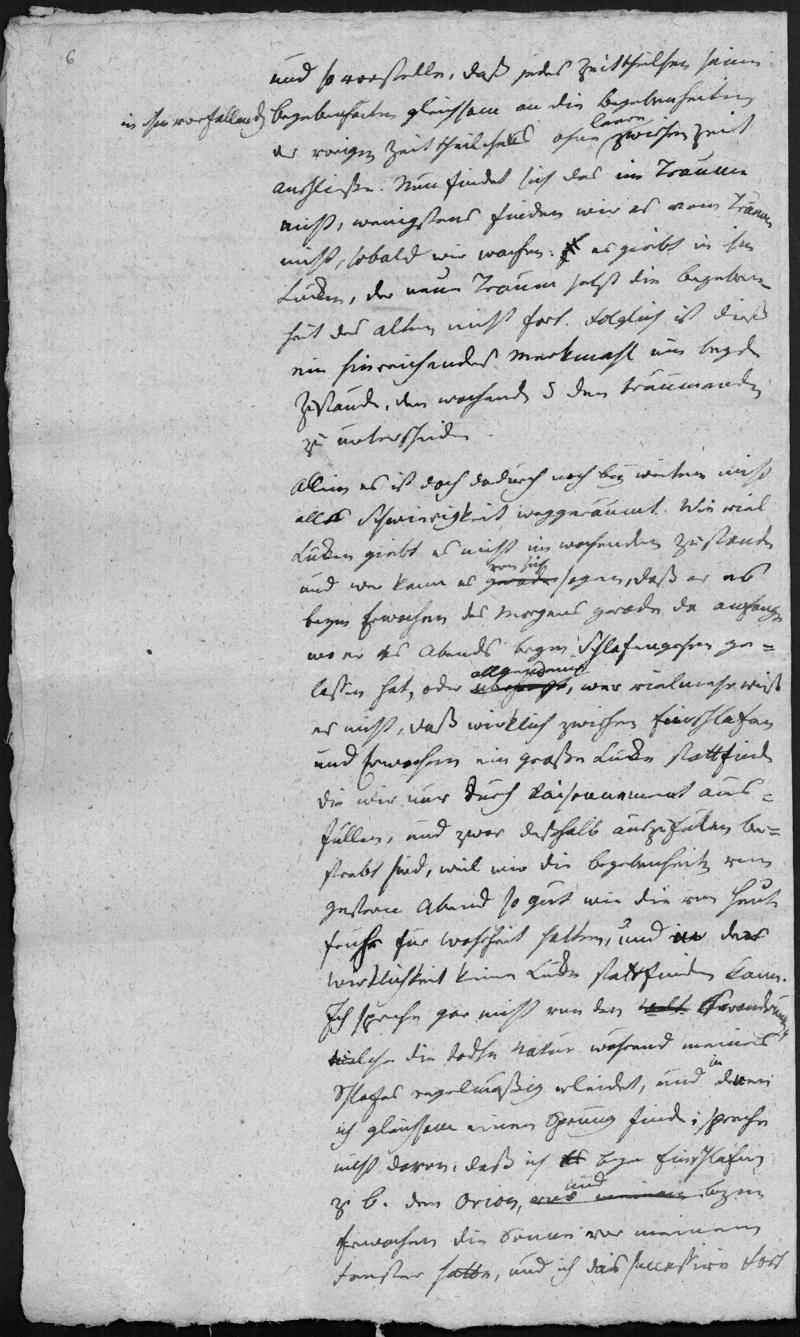 6
und so vorstelle, daß jedes Zeittheilchen seine
in ihm vorfallende
Begebenheiten gleichsam an die Begebenheiten
des vorigen Zeittheilchens ohne leere Zwischenzeit
anschließe. Nun findet sich das im Traume
nicht, wenigstens finden wir es vom Traum
nicht, sobald wir wachen. es giebt in ihm
Lücken, der neue Traum setzt die Begeben-
heit des alten nicht fort. Folglich ist dieß
ein hinreichendes Merkmahl um beyde
Zustände, den wachenden und den träumenden
zu unterscheiden.
Allein es ist doch dadurch noch bey weitem nicht
alle Schwierigkeit weggeräumt. Wie viel
Lücken giebt es nicht im wachenden Zustande
und wer kann es gerade von sich sagen, daß er es
beym Erwachen des Morgens gerade da anfange
wo er es Abends beym Schlafengehen ge=
lassen hat, oder allgemein, wer vielmehr weiß
es nicht, daß wirklich zwischen Einschlafen
und Erwachen eine große Lücke stattfinde
die wir nur durch Raisonnement aus=
füllen, und zwar deßhalb auszufüllen be=
strebt sind, weil wir die Begebenheiten von
gestern Abend so gut wie die von heute
frühe für Wahrheit halten, und in der
Wirklichkeit keine Lücke stattfinden kann.
Ich spreche gar nicht von den Veränderungen
welche die todte Natur während meines
Schlafes regelmäßig erleidet, und in denen
ich gleichsam einen Sprung finde; spreche
nicht davon, daß ich beym Einschlafen
z. B. den Orion, und beym
Erwachen die Sonne vor meinem
Fenster hatte, und ich das successive Fort